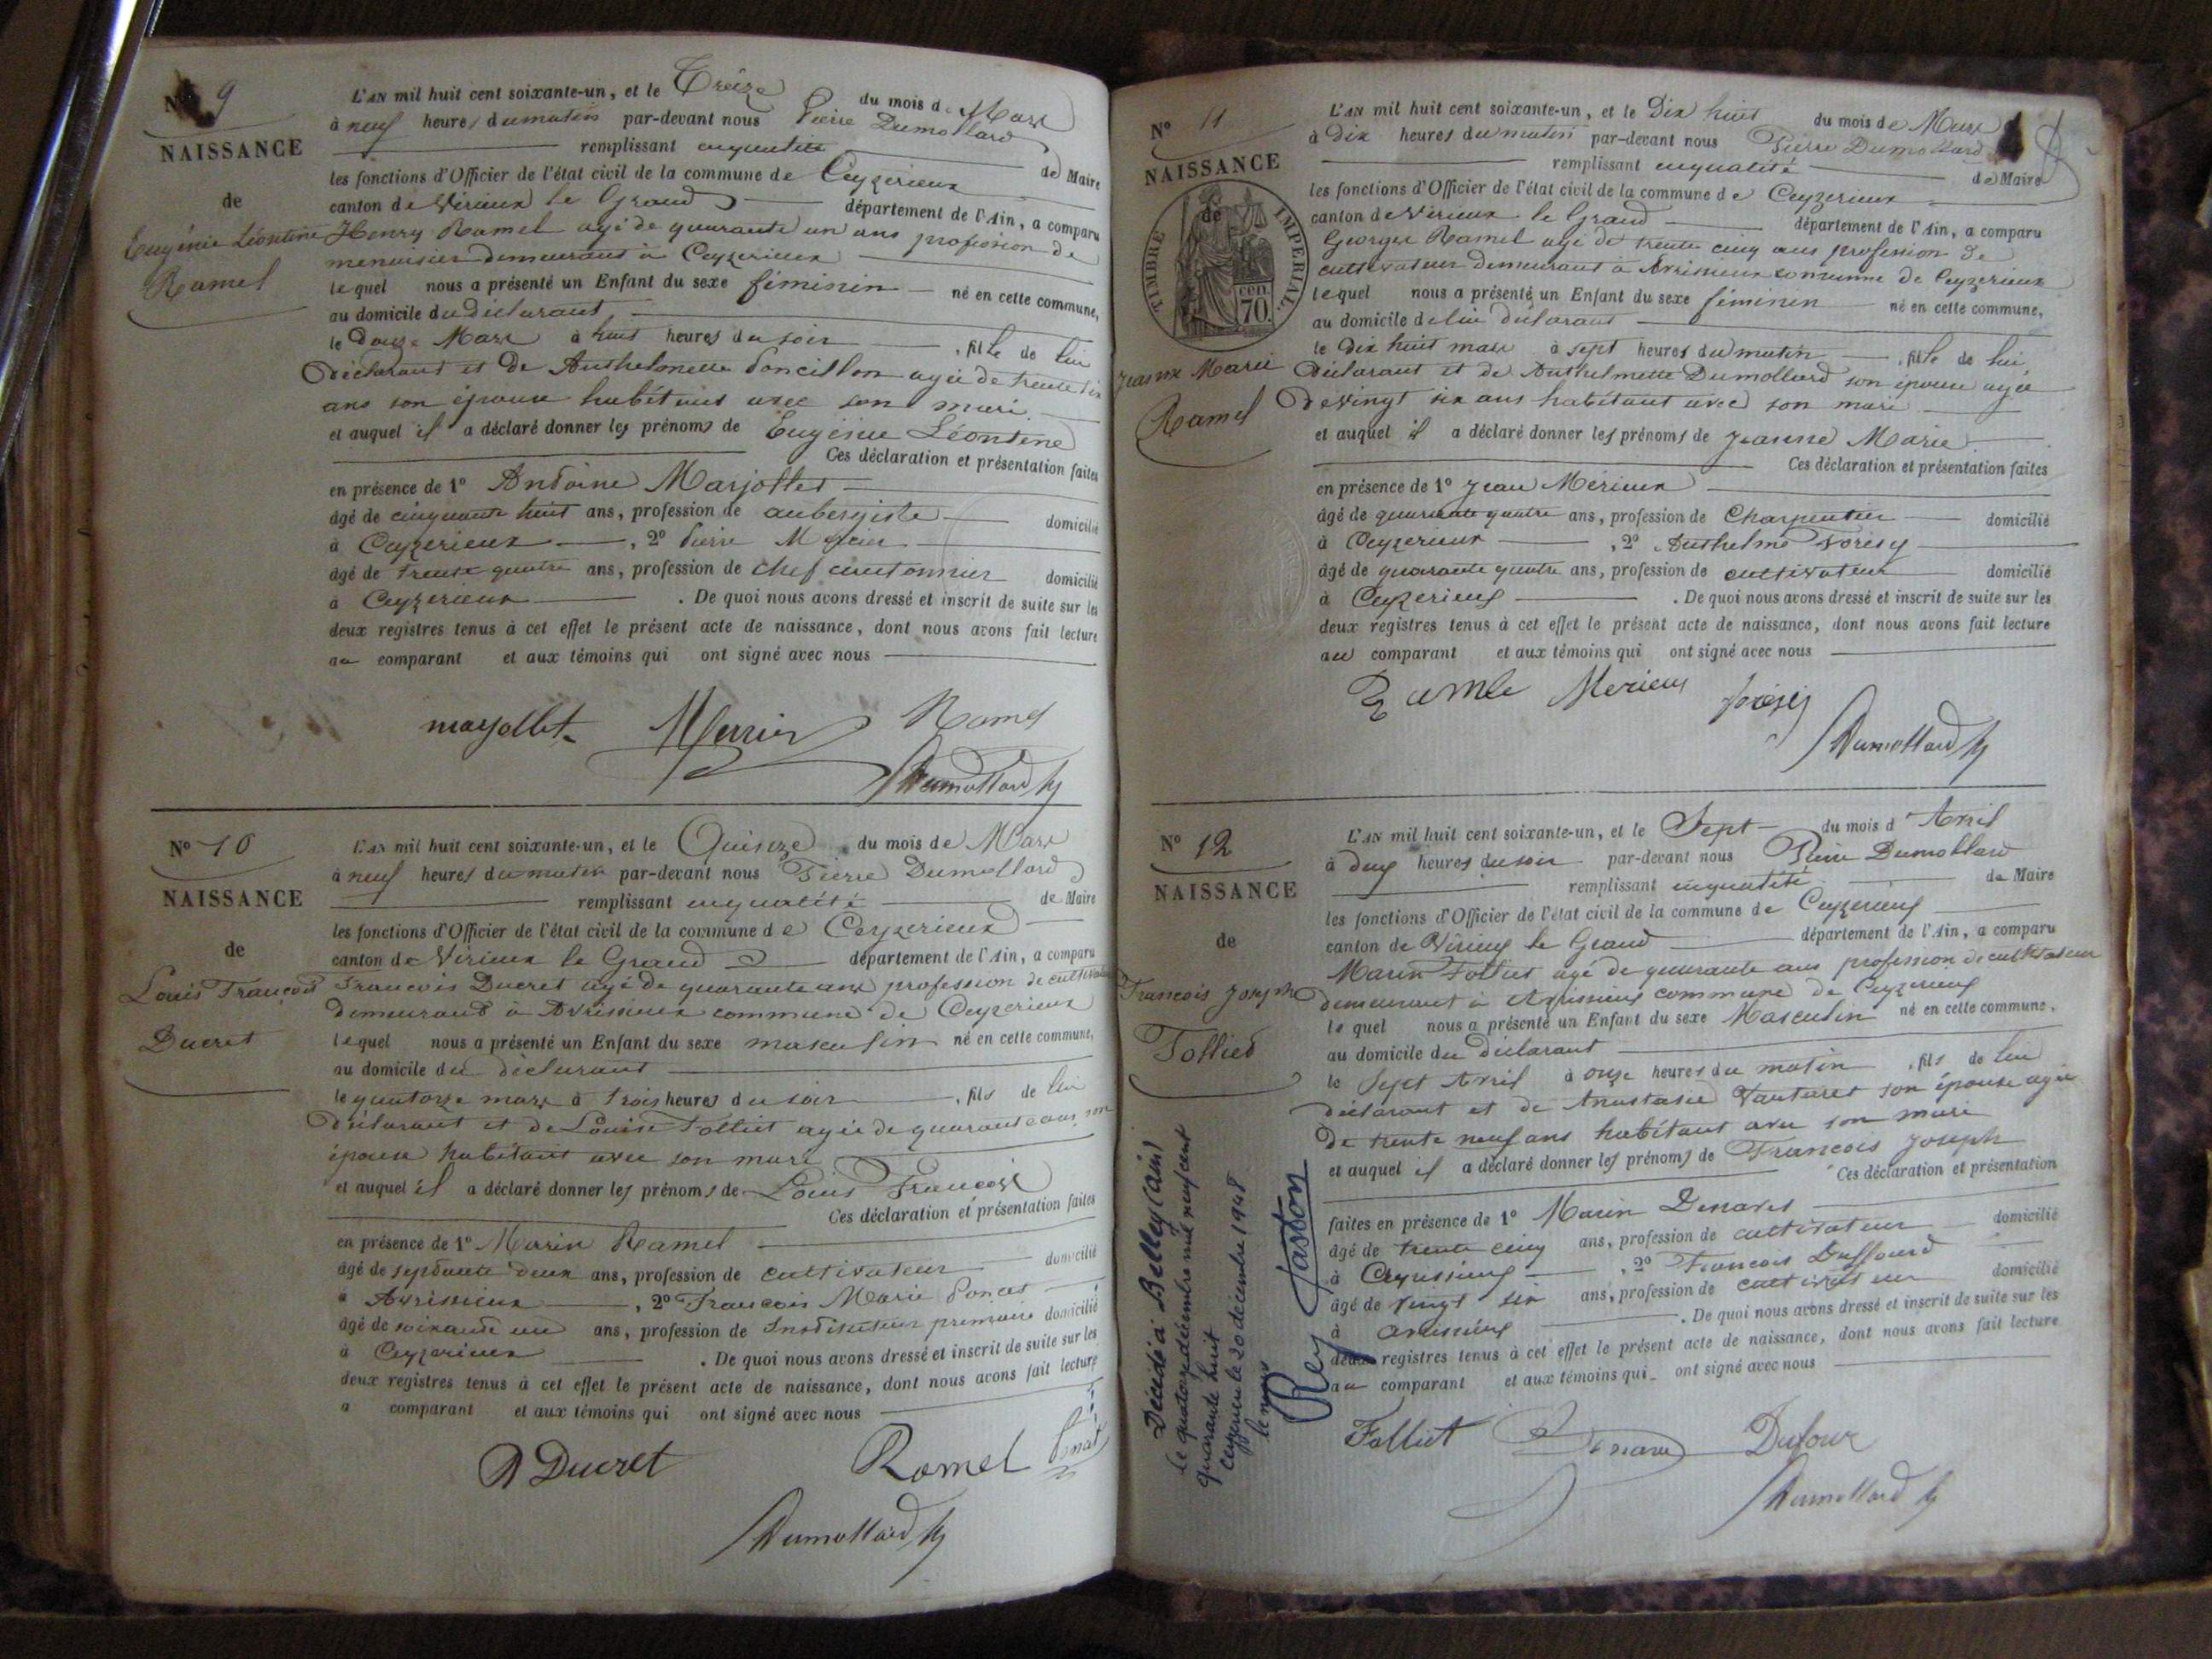 N° 9
NAISSANCE
de
Eugénie Léontine
Ramel
L'AN mil huit cent soixante-un, et le Treize du mois de Mars
à neuf heures du matin par-devant nous Pierre Dumollard
remplissant enqualité de Maire
les fonctions d'Officier de l'état civil de la commune de Ceyzerieux
canton de Virieux le Grand département de l'Ain, a comparu
Henry Ramel agé de quarante un ans profession de
menuisier demeurant à Ceyzerieux
lequel nous a présenté un Enfant du sexe féminin né en cette commune,
au domicile du déclarant
le Douze Mars à huit heures du soir, fille de lui
Déclarant et de Anthelmette Poncillon agée de trente six
ans son épouse habitant avec son mari
et auquel il a déclaré donner les prénoms de Eugénie Léontine
Ces déclaration et présentation faites
en présence de 1° Antoine Marjollet
âgé de cinquante huit ans, profession de aubergiste domicilié
à Ceyzerieux, 2° Pierre
âgé de trente quatre ans, profession de chef cantonnier domicilié
à Ceyzerieux. De quoi nous avons dressé et inscrit de suite sur les
deux registres tenus à cet effet le présent acte de naissance, dont nous avons fait lecture
au comparant et aux témoins qui ont signé avec nous
marjollet Ramel
Dumollard
N° 10
NAISSANCE
de
Louis François
Ducret
L'AN mil huit cent soixante-un, et le Quinze du mois de Mars
à neuf heures du matin par-devant nous Pierre Dumollard
remplissant enqualité de Maire
les fonctions d'Officier de l'état civil de la commune de Ceyzerieux
canton de Virieux le Grand département de l'Ain, a comparu
Francois Ducret agé de quarante ans profession de cultivateur
demeurant à Avrissieux commune de Ceyzerieux
lequel nous a présenté un Enfant du sexe masculin né en cette commune,
au domicile du déclarant
le quatorze mars à trois heures du soir, fils de lui
Déclarant et de Louise Folliet agée de quarante ans son
épouse habitant avec son mari
et auquel il a déclaré donner les prénoms de Louis François
Ces déclaration et présentation faites
en présence de 1° Marin Ramel
âgé de septante deux ans, profession de cultivateur domicilié
à Avrissieux, 2° Francois Marie Poncet
âgé de soixante un ans, profession de Instituteur primaire domicilié
à Ceyzerieux. De quoi nous avons dressé et inscrit de suite sur les
deux registres tenus à cet effet le présent acte de naissance, dont nous avons fait lecture
a comparant et aux témoins qui ont signé avec nous
Ducret Ramel
Dumollard
N° 11
NAISSANCE
de
TIMBRE IMPERIAL
70 cen.
Jeanne Marie
Ramel
L'AN mil huit cent soixante-un, et le Dix huit du mois de Mars
à Dix heures du matin par-devant nous Pierre Dumollard
remplissant enqualité de Maire
les fonctions d'Officier de l'état civil de la commune de Ceyzerieux
canton de Virieux le Grand département de l'Ain, a comparu
Georges Ramel agé de trente cinq ans profession de
cultivateur demeurant à Avrissieux commune de Ceyzerieux
lequel nous a présenté un Enfant du sexe féminin né en cette commune,
au domicile de lui déclarant
le Dix huit mars à sept heures du matin, fille de lui,
Déclarant et de Anthelmette Dumollard son épouse agée
De vingt six ans habitant avec son mari
et auquel il a déclaré donner les prénoms de Jeanne Marie
Ces déclaration et présentation faites
en présence de 1° Jean Mérieux
âgé de quarante quatre ans, profession de Charpentier domicilié
à Ceyzerieux, 2° Anthelme
âgé de quarante quatre ans, profession de cultivateur domicilié
à Ceyzerieux. De quoi nous avons dressé et inscrit de suite sur les
deux registres tenus à cet effet le présent acte de naissance, dont nous avons fait lecture
au comparant et aux témoins qui ont signé avec nous
Ramle Merieux
Dumollard
N° 12
NAISSANCE
de
Francois Joseph
Folliet
L'AN mil huit cent soixante-un, et le Sept du mois d'Avril
à deux heures du soir par-devant nous Pierre Dumollard
remplissant enqualité de Maire
les fonctions d'Officier de l'état civil de la commune de Ceyzerieux
canton de Virieux le Grand département de l'Ain, a comparu
Marin Folliet agé de quarante ans profession de cultivateur
demeurant à Avrissieux commune de Ceyzerieux
lequel nous a présenté un Enfant du sexe Masculin né en cette commune,
au domicile du déclarant
le Sept Avril à onze heures du matin, fils de lui
déclarant et de Anastasie Vautaret son épouse agée
De trente neuf ans habitant avec son mari
et auquel il a déclaré donner les prénoms de Francois Joseph
Ces déclaration et présentation
faites en présence de 1° Marin
âgé de trente cinq ans, profession de cultivateur domicilié
à Avrissieux, 2° Francois
âgé de vingt six ans, profession de cultivateur domicilié
à Avrissieux. De quoi nous avons dressé et inscrit de suite sur les
deux registres tenus à cet effet le présent acte de naissance, dont nous avons fait lecture
au comparant et aux témoins qui ont signé avec nous
Folliet Dufour
Dumollard
Décédé à Belley (ain)
le quatorze décembre mil neuf cent
quarante huit
le 20 décembre 1948
le maire
Rey Gaston